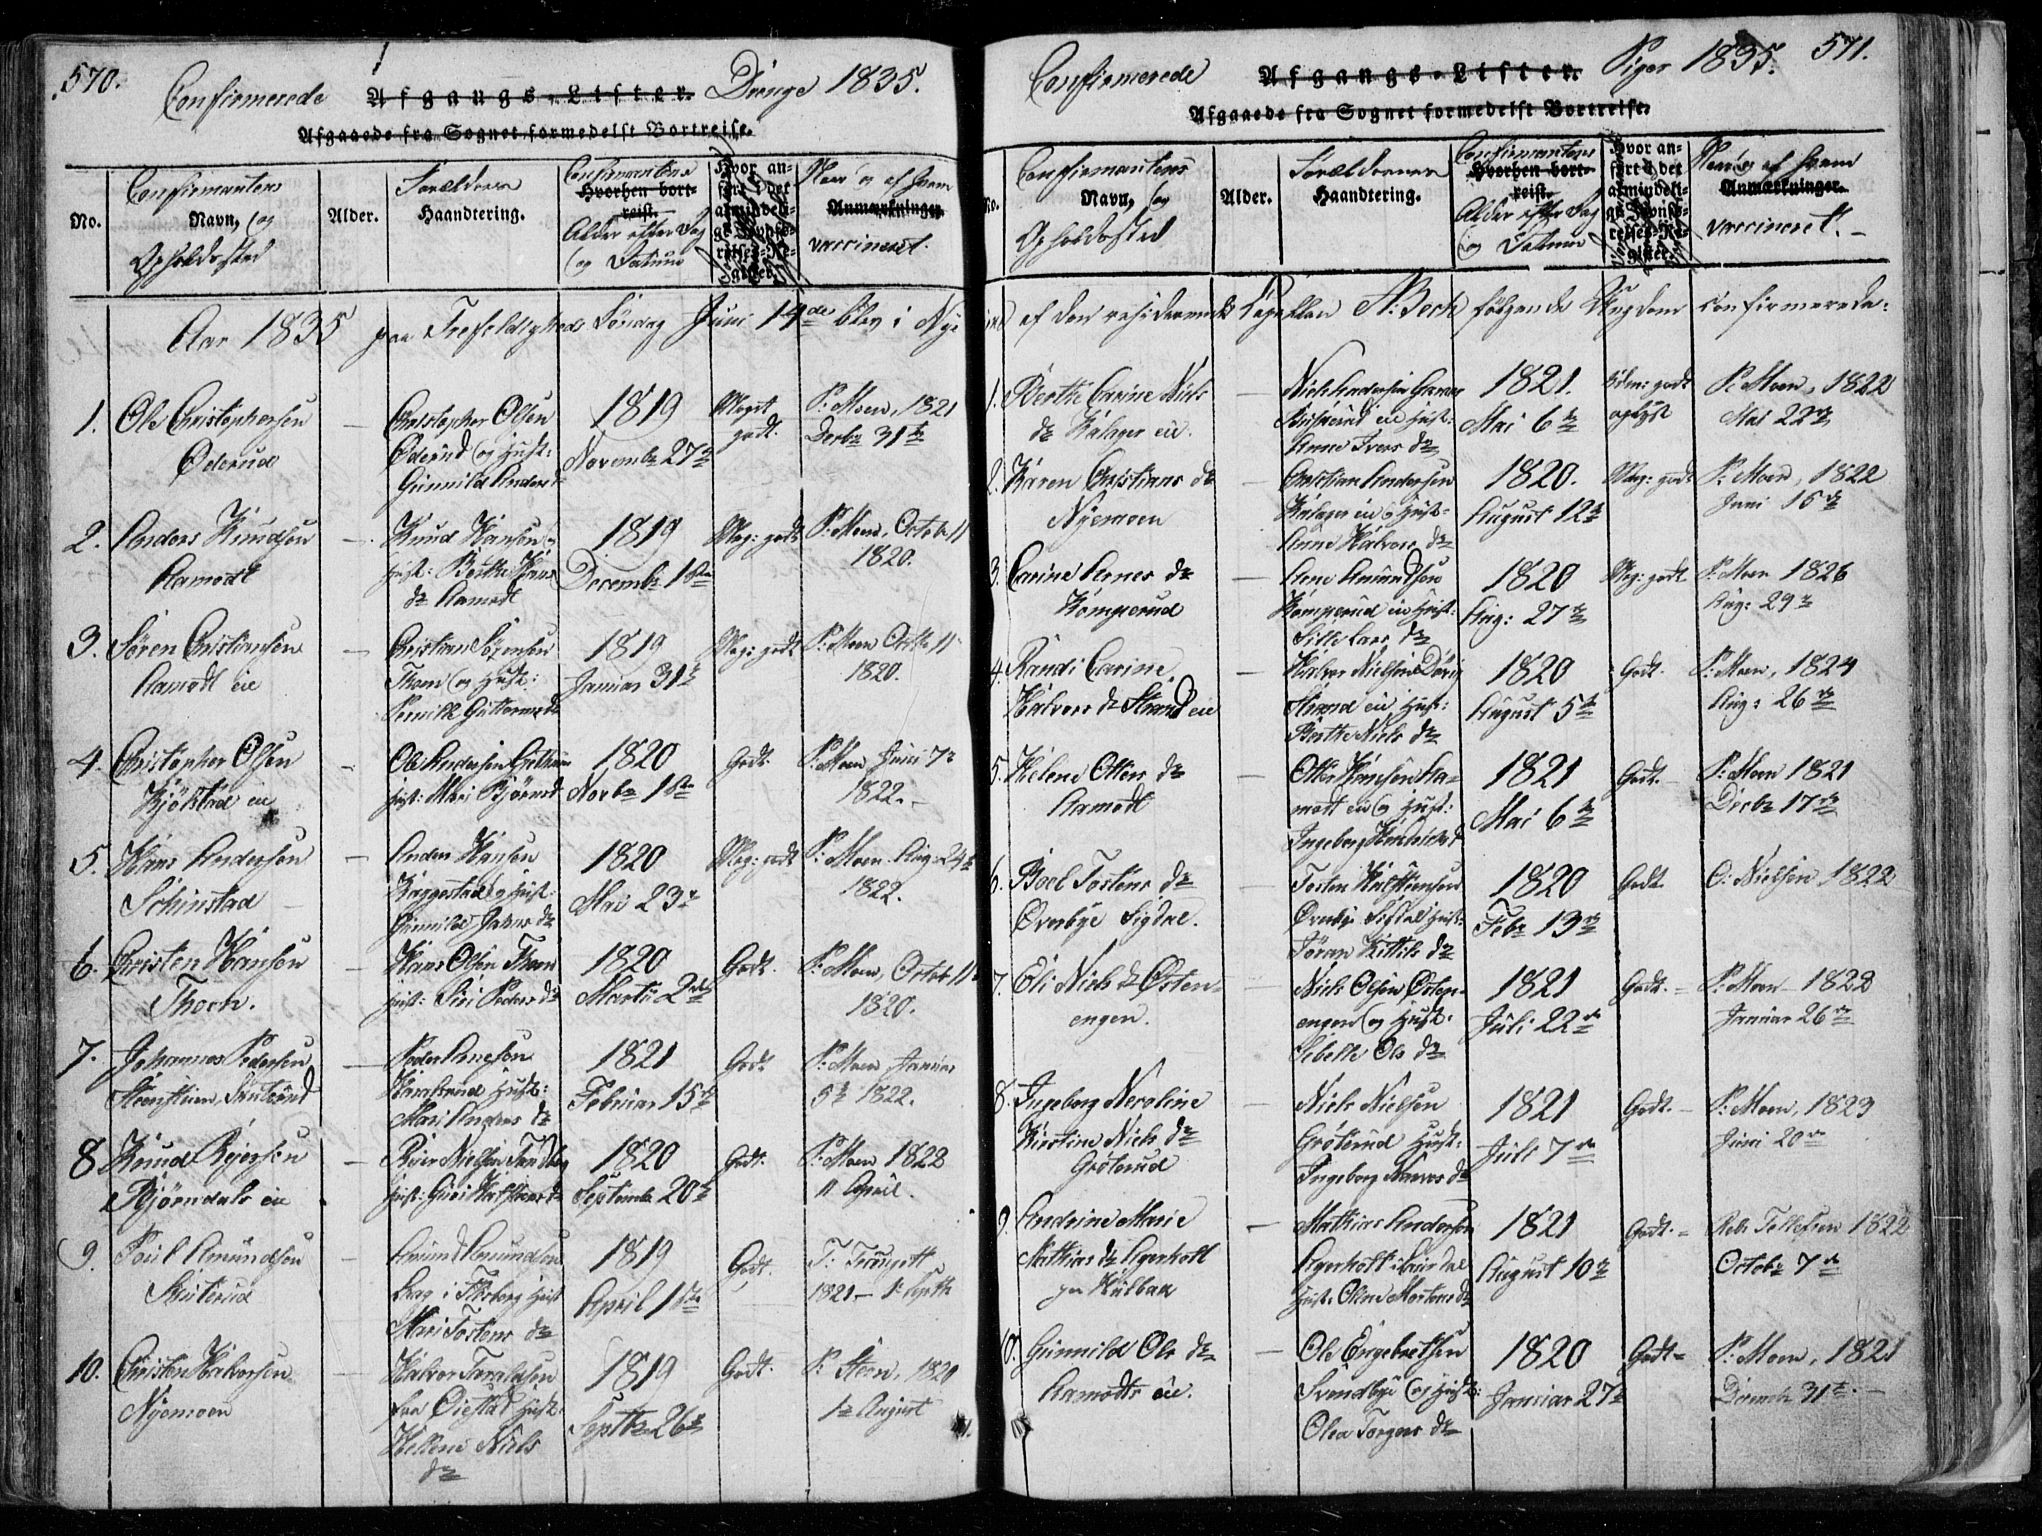 570.
Confirmerede Afgangs-Lister. Drenge 1835.
Afgaaede fra Sognet formedelst Bortreise.
No.
Confirmantens
Navn, og
Opholdssted
Alder.
Forældrenes
Haandtering.
Confirmantens
Hvorhen bort-
reist.
Alder efter Dag
og Datum
Hvor an-
ført i det
almindeli-
ge Jevnfø-
relses-Re-
gister.
Naar og af hvem
Anmærkninger.
vaccineret.
Aar 1835 paa Trefoldigheds Søndag Juni 14de blev i Nye
1. Ole Christophersen
Øderud
Christopher Olsen
Øderud og Hust:
Gunnild Anders d
1819
Novembr 27de
Meget
godt.
P: Moen, 1821
Decbr 31te
2. Anders Knudsen
Aamodt
Knud Hansen
Hust: Berthe Hans
dr Aamodt
1819
Decembr 1ste
Meg: godt
P: Moen, Octob 11
1820.
3. Søren Christiansen
Aamodt eie
Christian Sørensen
Thoen og Hust:
Pernille Guttorms dr
1819
Januar 31te
Meg: godt
P: Moen Octbr 11
1820.
4. Christopher Olsen
Kjølstad eie
Ole Andersen
Hust: Mari Bjørns d
1820
Novbr 1ste
Godt.
P: Moen Juni 7de
1822.
5. Hans Andersen
Schinstad
Anders Hansen
Haggestad og Hust:
Gunnild dr
1820
Mai 23de
Meg: godt
P: Moen Aug: 24de
1822.
6. Christen Hansen
Thoen.
Hans Olsen Thoen
Hust: Siri Peders dr
1820
Marti 2den
Godt.
P: Moen, Octob 11te
1820.
7. Johannes Pedersen
Steenstuen, Skuterud
Peder Arnesen
Hust:
Mari Anders dr
1821
Februar 15de
Godt
P: Moen Januar
5te 1822.
8. Knud Reiersen
Bjørndals eie
Reier Nielsen
Hust: Guri dr
1820
Septembr 20de
Godt.
P: Moen 1822
11 April.
9. Poul Amundsen
Skuterud
Amund Amundsen
Hust
Mari Tostens dr
1819
April 1ste
Godt.
T:
1821 - 1
10. Christen Halvorsen
Nyemoen
Halvor Taraldsen
fra Øiestad Hust:
Hellene Niels
dr
1819
Septbr 26de
Godt.
P: Steen, 1820
1te August
Confirmerede Afgangs-Lister. Piger 1835. 571.
Afgaaede fra Sognet formedelst Bortreise.
No.
Confirmantens
Navn, og
Opholdssted
Alder.
Forældrenes
Haandtering.
Confirmantens
Hvorhen bort-
reist.
Alder efter Dag
og Datum
Hvor an-
ført i det
almindeli-
ge Jevnfø-
relses-Re-
gister.
Naar og af hvem
Anmærkninger.
vaccineret.
af den residerende Capellan N: Bech følgende Ungdom confirmerede:
1. Berthe Carine Niels
dr Kalager eie.
Niels Andersen
eie Hust:
Anne Ivers dr
1821.
Mai 6te
Udm: godt
oplyst
P: Moen, 1822
Mai 22de
2. Karen Christians dr
Nyemoen
Christian Andersen
Kalager eie og Hust:
Anne Halvors dr
1820.
August 12te
Meg: godt
P: Moen, 1822
Juni 15de
3. Carine Arnes dr
Komperud
Arne Amundsen
Komperud eie Hust:
Sille Lars dr
1820
Aug: 27de
Meg: godt
P: Moen 1826
Aug: 29de
4. Randi Carine
Halvors dr Strand eie
Halvor Nielsen
Strand eie Hust:
Berthe Niels dr
1820
August 5te
Godt.
P: Moen, 1824
Aug: 26de
5. Helene Otters dr
Aamodt
Otter Hansen Aa-
modt eie og Hust:
Ingeborg Henrichs d
1821
Mai 6te
Godt.
P: Moen 1821
Decbr 17de
6. Boel Tostens dr
Overbye Sigdal.
Tosten
Overbye Sigdal Hust:
Jøran Kittils dr
1820
Febr 13de
Godt
O: Nielsen 1822
7. Eli Niels dr Østen-
engen.
Niels Olsen Østen-
engen og Hust:
Sebelle Ols dr
1821
Juli 22de
Godt.
P: Moen 1822
Januar 26de
8. Ingeborg Neroline
Kirstine Niels dr
Grøterud
Niels Nielsen
Grøterud Hust:
Ingeborg dr
1821
Juli 7de
Godt.
P: Moen, 1823
Juni 20de
9. Andrine Marie
Mathias dr Agerholt
paa
Mathias Andersen
Agerholt i
Hust: Oline Mortens dr
1821
August 10de
Godt.
Tellefsen 1822
Octobr 7de
10. Gunnild Ols dr
Aamodts eie.
Ole Engebretsen
Svendbye og Hust:
Olea Torgers dr
1820
Januar 27de
Godt
P: Moen, 1821
Decemb 31te